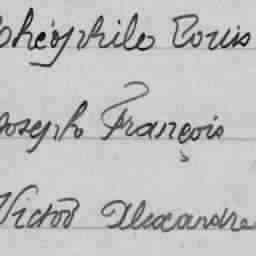 Théophile Louis
Joseph François
Victor Alexandre